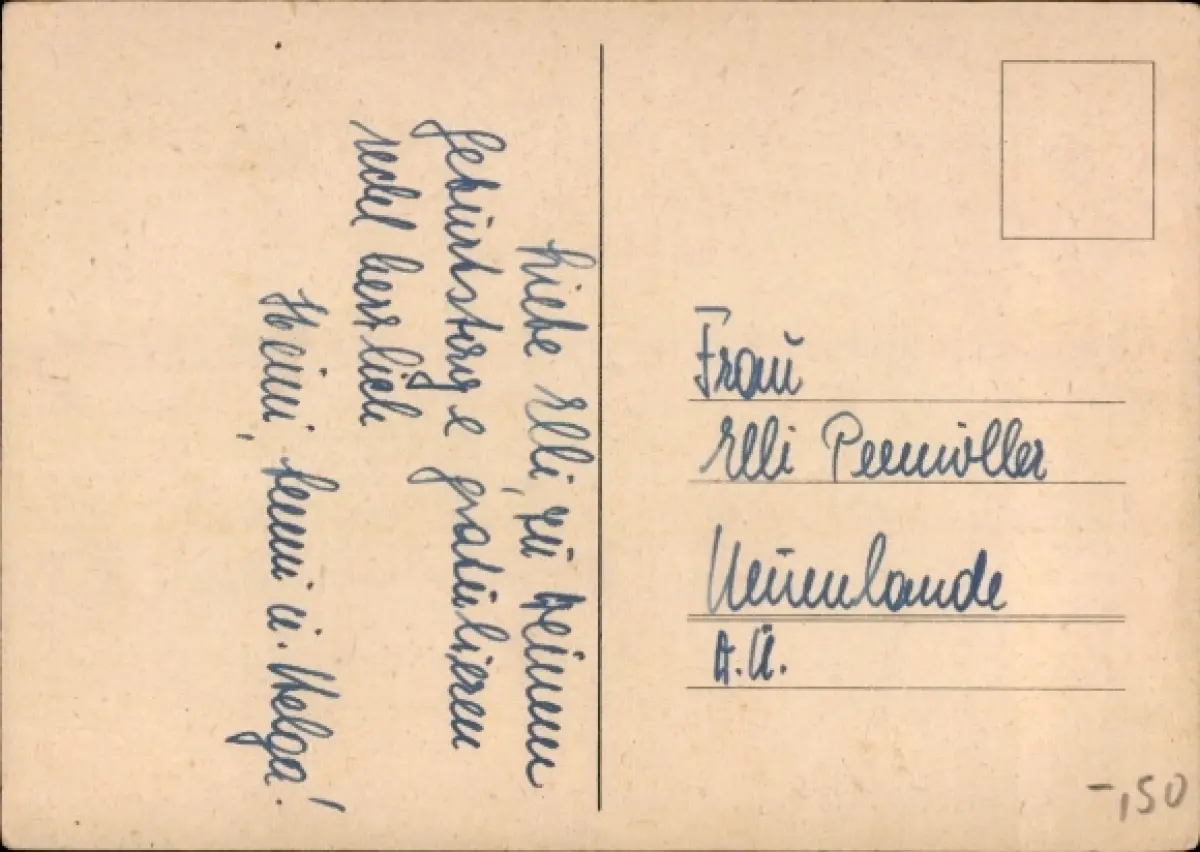 Liebe Elli, zu Deinem
Geburtstage gratulieren
recht herzlich
Heini, Henni u. Helga!
Frau
Elli Peemöller
Neuenlande
A.Ü.
-,50